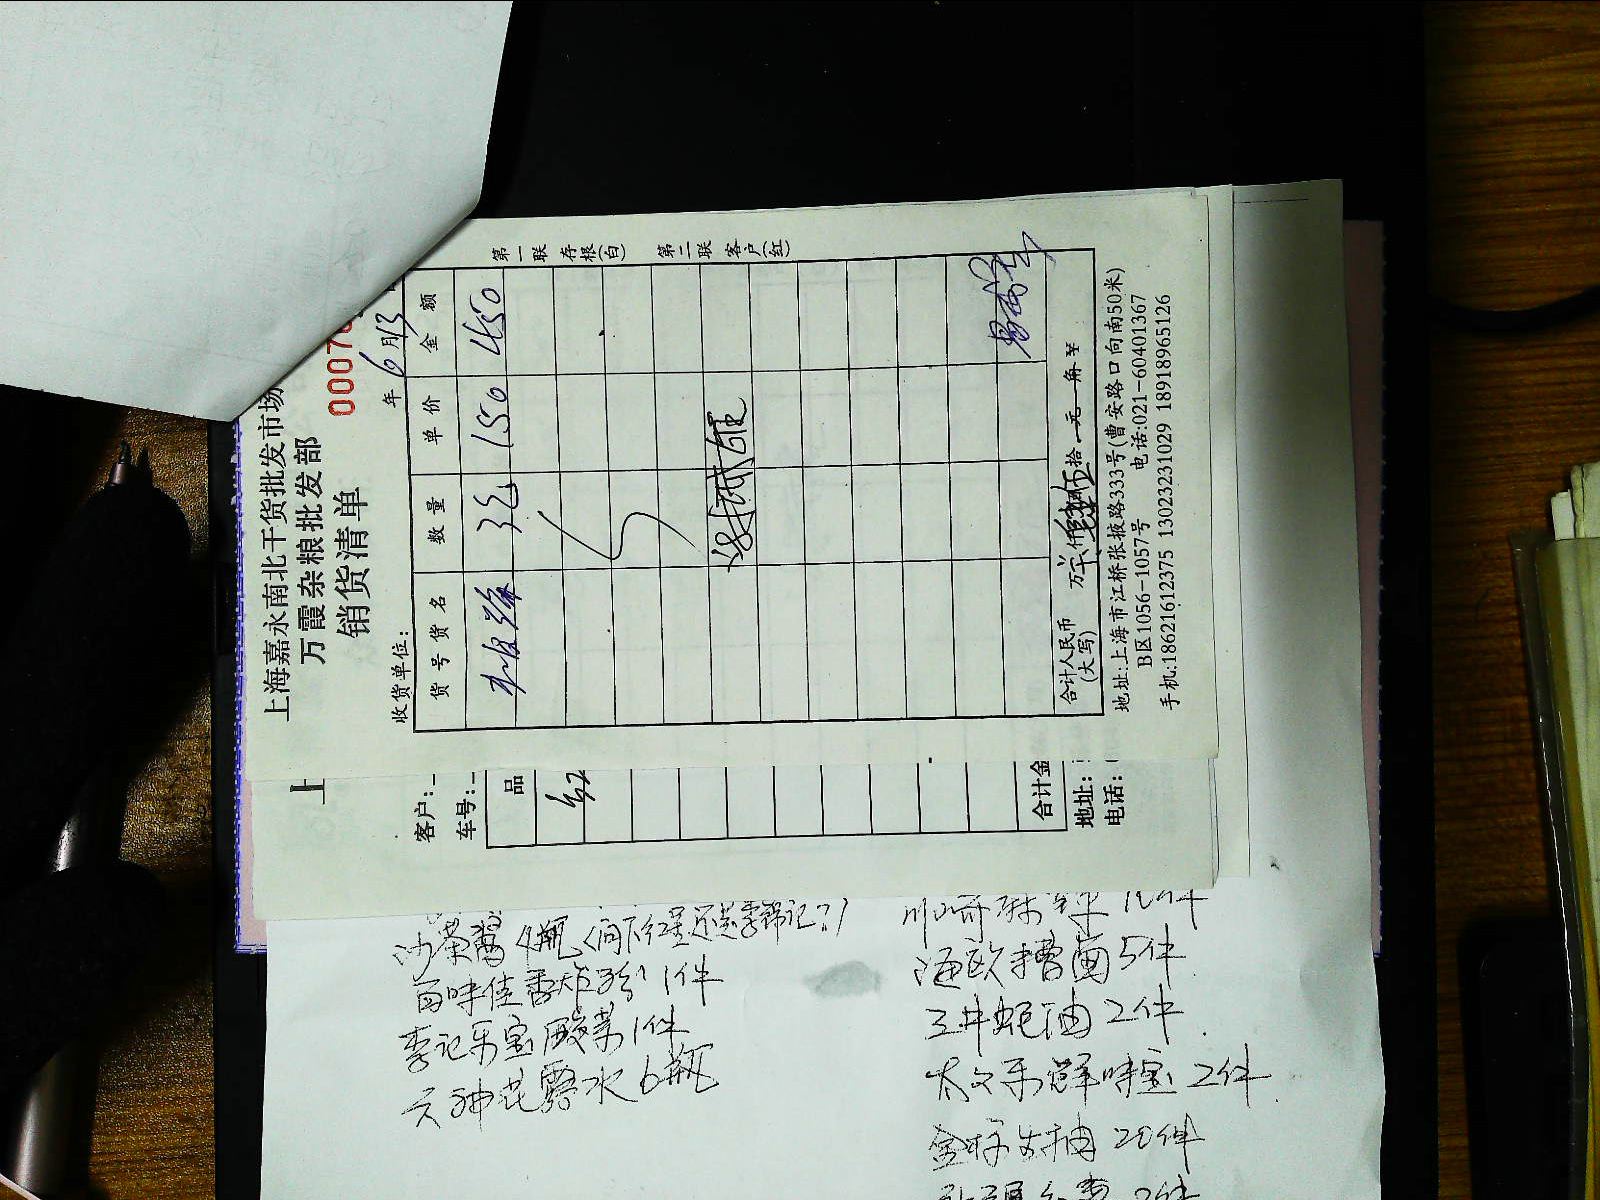 上海嘉永南北干货批发市场
万霞杂粮批发部
销货清单
0007
年 6月13
收货单位:
货号货名 数量 单价 金额
3包 150 450
第一联 存根(白) 第二联 客户(红)
合计人民币(大写) 万 仟 佰 拾 元 角 ¥
地址:上海市江桥张掖路333号(曹安路口向南50米)
B区1056-1057号 电话:021-60401367
手机:18621612375 13023231029 18918965126
上
客户:
车号:
品
合计金
地址:
电话:
沙茶酱4瓶(问下红星还送李锦记?)
百味佳香炸粉1件
李记乐宝酸菜1件
六神花露水6瓶
川崎 10件
海欧槽卤5件
三井蚝油2件
太太乐鲜味宝2件
金标生抽20件
2件